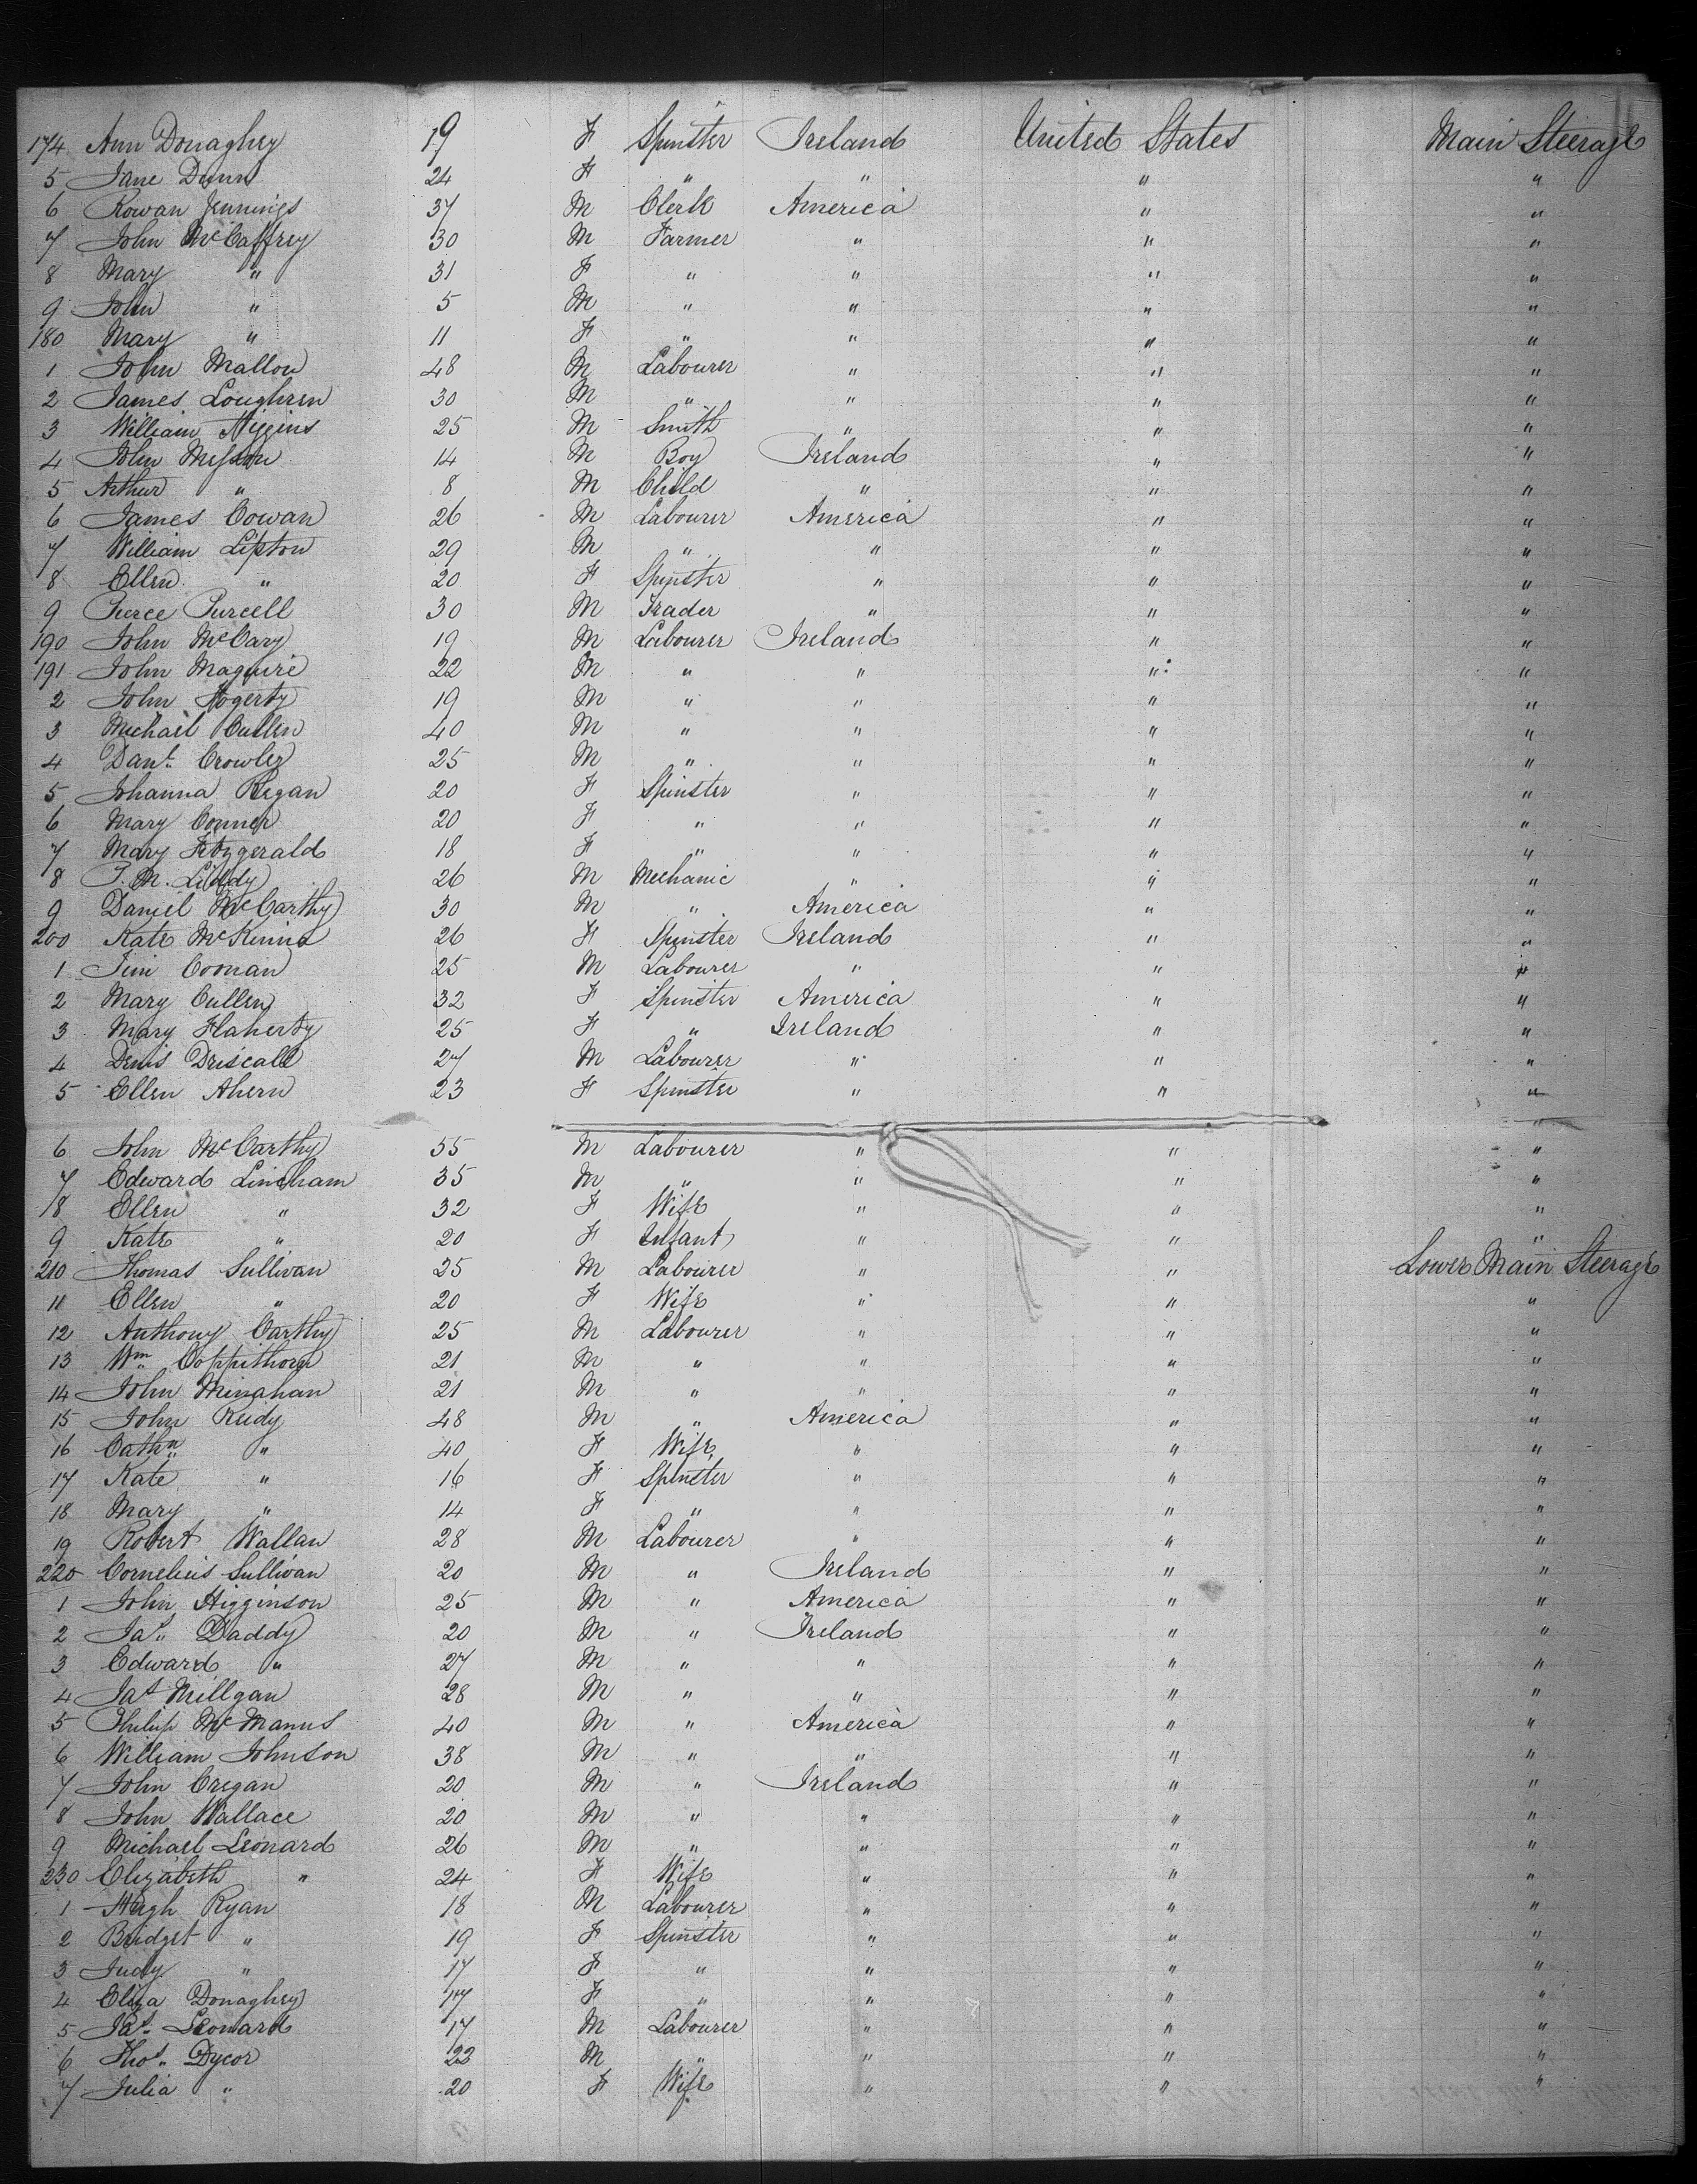 174 Ann Donaghey 19 F Spinster Ireland United States Main Steerage
5 Jane Dunn 24 F " " " "
6 Rowan Jennings 37 M Clerk America " "
7 John McCaffrey 30 M Farmer " " "
8 Mary " 31 F " " " "
9 John " 5 M " " " "
180 Mary " 11 F " " " "
1 John Mallow 48 M Labourer " " "
2 James Loughren 30 M " " " "
3 William Higgins 25 M Smith " " "
4 John 14 M Boy Ireland " "
5 Arthur " 8 M Child " " "
6 James Cowan 26 M Labourer America " "
7 William Lipton 29 M " " " "
8 Ellen " 20 F Spinster " " "
9 Pierce Purcell 30 M Trader " " "
190 John McCary 19 M Labourer Ireland " "
191 John Maguire 22 M " " " "
2 John Hogerty 19 M " " " "
3 Michael Cullen 40 M " " " "
4 Danl. Crowley 25 M " " " "
5 Johanna Regan 20 F Spinster " " "
6 Mary Conner 20 F " " " "
7 Mary Fitzgerald 18 F " " " "
8 P. M. Liddy 26 M Mechanic " " "
9 Daniel McCarthy 30 M " America " "
200 Kate McKinna 26 F Spinster Ireland " "
1 Jim Coonan 25 M Labourer " " "
2 Mary Cullen 32 F Spinster America " "
3 Mary Flaherty 25 F " Ireland " "
4 Denis Driscall 27 M Labourer " " "
5 Ellen Ahern 23 F Spinster " " "
"
6 John McCarthy 55 M Labourer " " "
7 Edward Lineham 35 M " " " "
8 Ellen " 32 F Wife " " "
9 Kate " 20 F Infant " " "
210 Thomas Sullivan 25 M Labourer " " Lower Main Steerage
11 Ellen " 20 F Wife " " "
12 Anthony Carthy 25 M Labourer " " "
13 Wm Coppithorn 21 M " " " "
14 John Minahan 21 M " " " "
15 John Reidy 48 M " America " "
16 Cathn " 40 F Wife " " "
17 Kate " 16 F Spinster " " "
18 Mary " 14 F " " " "
19 Robert Wallan 28 M Labourer " " "
220 Cornelius Sullivan 20 M " Ireland " "
1 John Higginson 25 M " America " "
2 Jas. Daddy 20 M " Ireland " "
3 Edward " 27 M " " " "
4 Jas Millgan 28 M " " " "
5 Philip McManus 40 M " America " "
6 William Johnson 38 M " " " "
7 John Cregan 20 M " Ireland " "
8 John Wallace 20 M " " " "
9 Michael Leonard 26 M " " " "
230 Elizabeth " 24 F Wife " " "
1 Hugh Ryan 18 M Labourer " " "
2 Bridget " 19 F Spinster " " "
3 Judy " 17 F " " " "
4 Eliza Donaghey 17 F " " " "
5 Jas. Leonard 17 M Labourer " " "
6 Thos. Dycor 22 M " " " "
7 Julia " 20 F Wife " " "